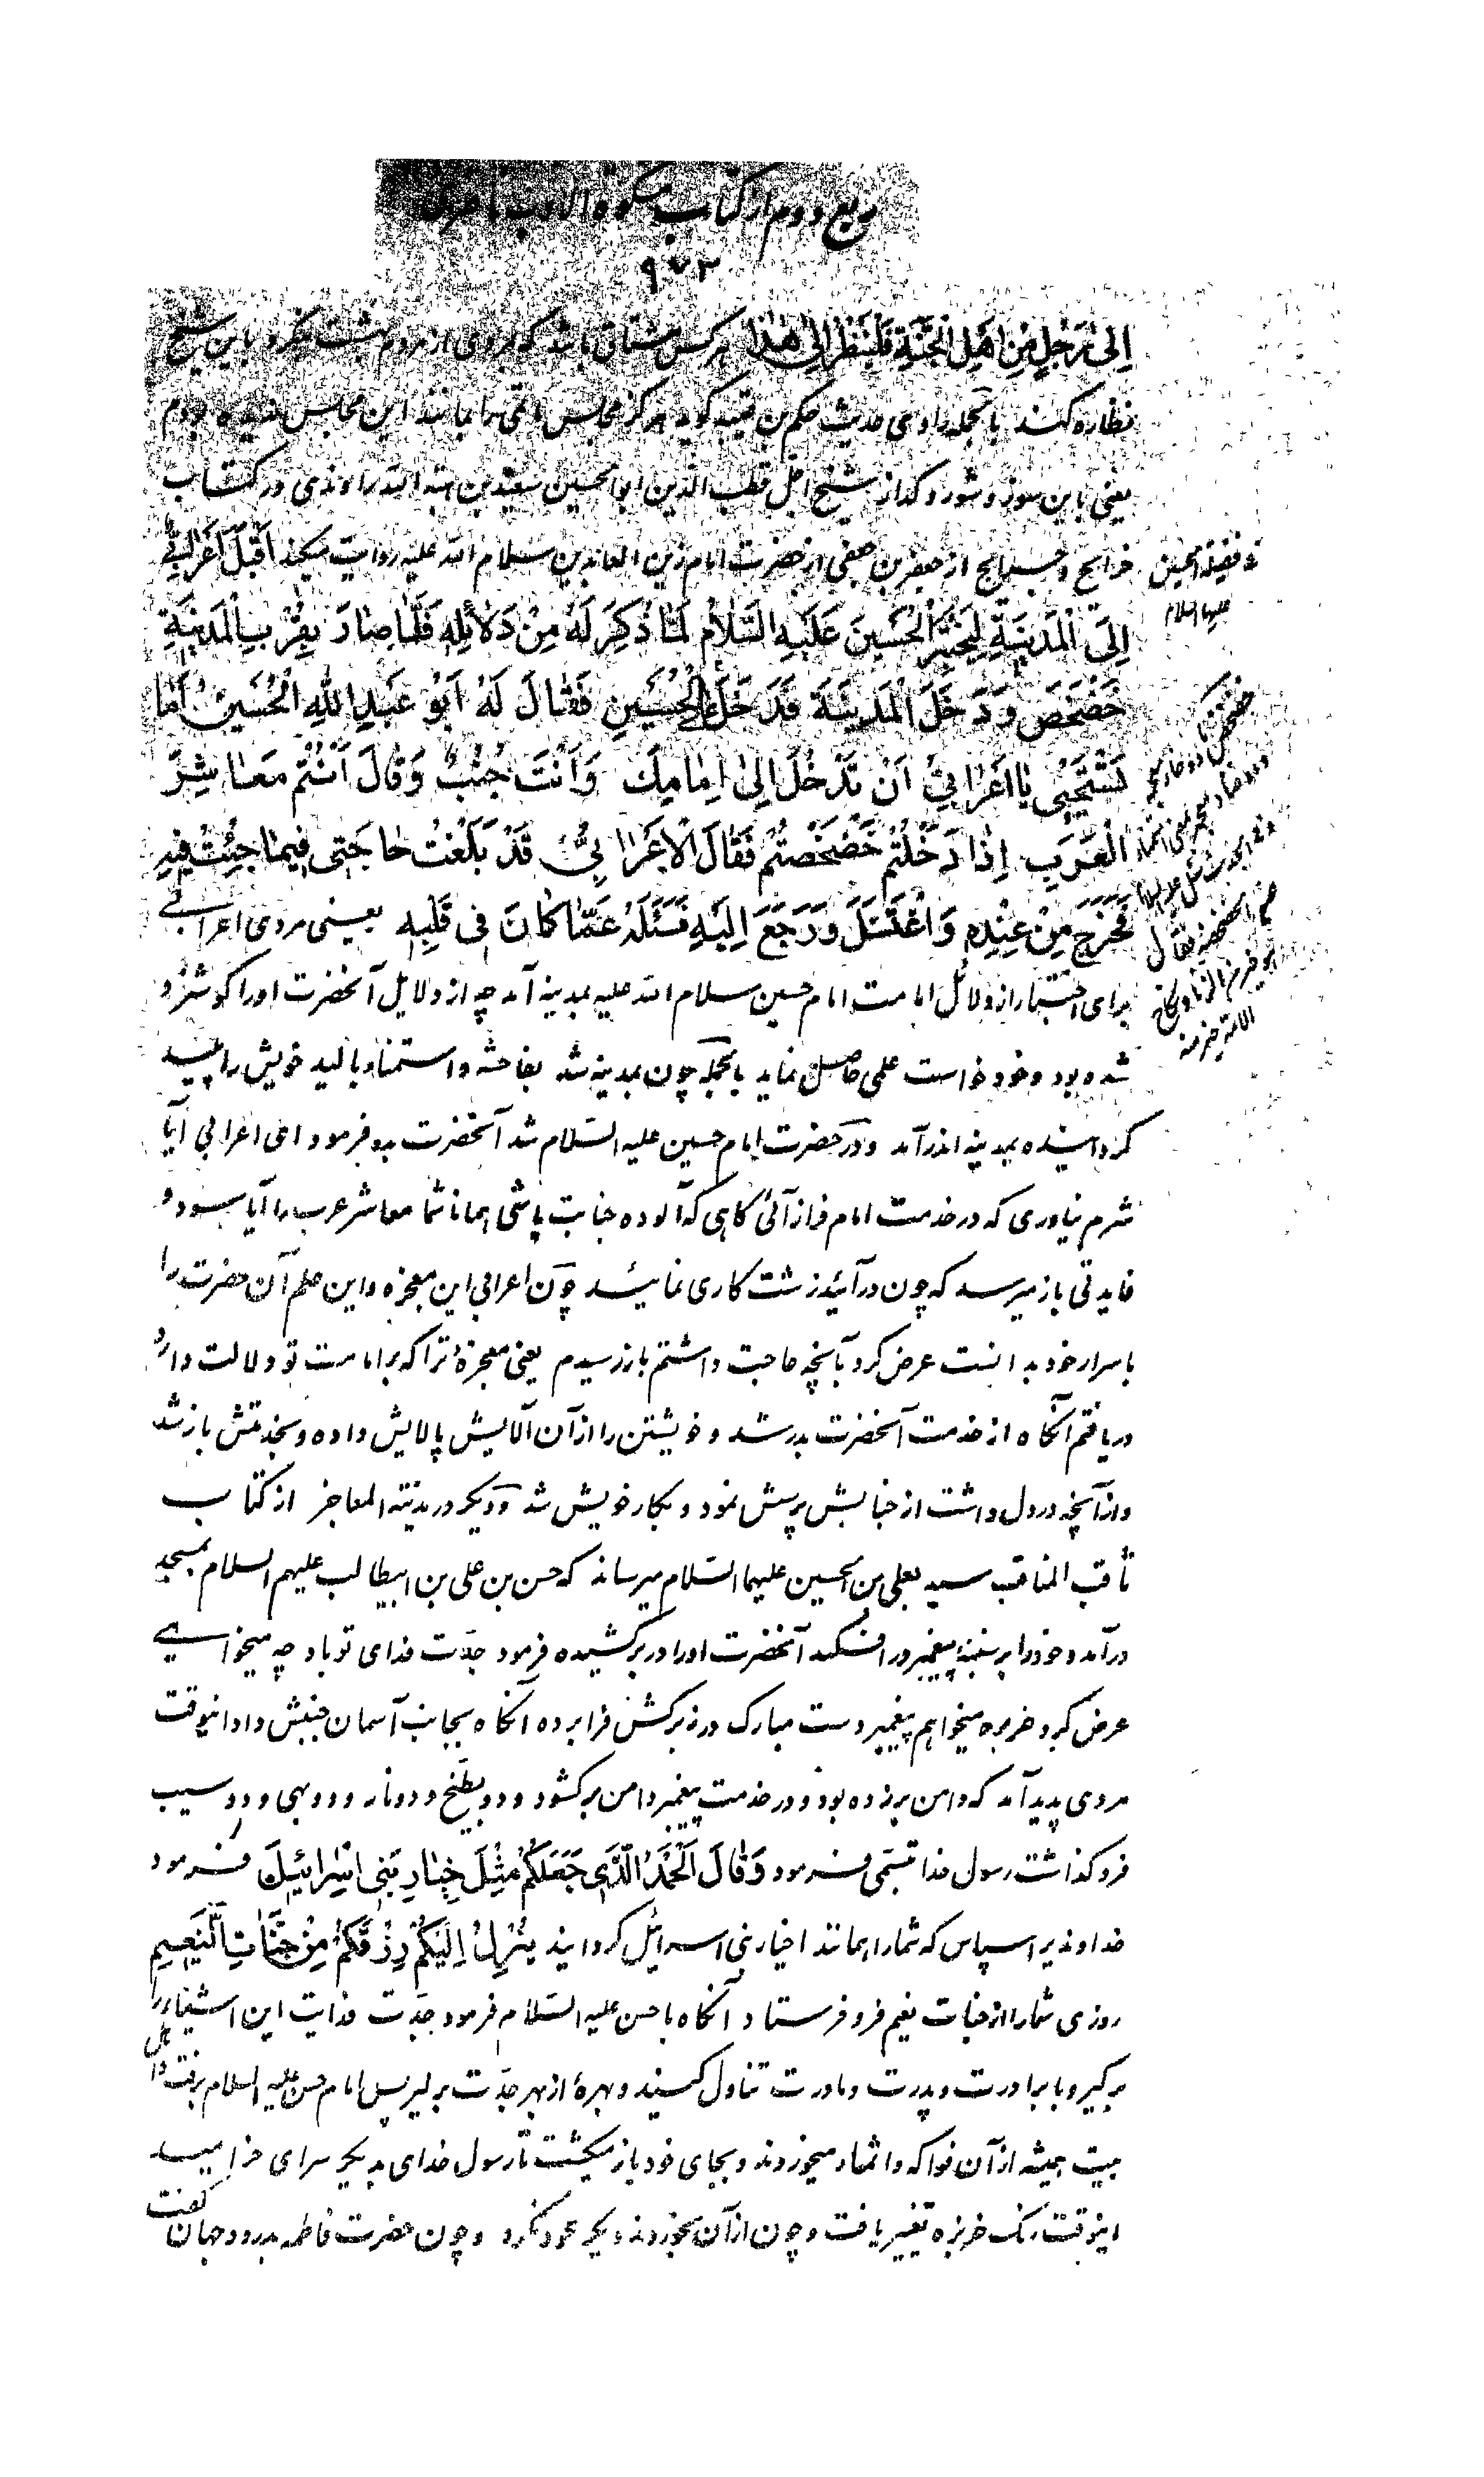 ربع دوم از کتاب مشکوة الادب ناصری
۹۷۳
اِلیٰ رَجُلٍ مِنْ اَهْلِ الْجَنَّةِ فَلْیَنْظُرْ اِلیٰ هٰذا هر کس مشتاق باشد که بروی از مردم بهشت بنگرد باین شیخ
نظاره کند بالجمله راوی حدیث حکم بن عتیبه گوید هرگز مجلس ماتمی را بمانند این مجلس ندیده بودم
یعنی باین سوز و شور و گداز شیخ اجل قطب الدین ابو الحسین سعید بن هبة الله راوندی در کتاب
خرایج و جرایح از جعفر بن جعفی از حضرت امام زین العابدین سلام الله علیه روایت میکند اَقْبَلَ اَعْرٰابِیٌّ
اِلَی الْمَدینَةِ لِیَخْتَبِرَ الْحُسَیْنَ عَلَیْهِ السَّلاٰمُ لَمّٰا ذُکِرَ لَهُ مِنْ دَلاٰئِلِهِ فَلَمّٰا صٰارَ بِقُرْبِ الْمَدینَةِ
خَضْخَضَ وَدَخَلَ الْمَدینَةَ فَدَخَلَ عَلَی الْحُسَیْنِ فَقٰالَ لَهُ اَبُو عَبْدِ اللهِ الْحُسَیْنُ اَمٰا
تَسْتَحْیی یٰا اَعْرٰابِیُّ اَنْ تَدْخُلَ اِلیٰ اِمٰامِکَ وَاَنْتَ جُنُبٌ وَقٰالَ اَنْتُمْ مَعٰاشِرَ
الْعَرَبِ اِذٰا دَخَلْتُمْ خَضْخَضْتُمْ فَقٰالَ الْاَعْرٰابِیُّ قَدْ بَلَغْتُ حٰاجَتی فیمٰا جِئْتُ فیهِ
فَخَرَجَ مِنْ عِنْدِهِ وَاغْتَسَلَ وَرَجَعَ اِلَیْهِ فَسَئَلَهُ عَمّٰا کٰانَ فی قَلْبِهِ یعنی مردی اعرابی
برای اختبار از دلائل امامت امام حسین سلام الله علیه بمدینه آمد چه از دلایل آنحضرت او را گوشزد
شده بود و خود خواست علمی حاصل نماید بالجمله چون بمدینه شد بفاحشه و استمناء بالید خویش را پلید
گردانیده بمدینه اندر آمد و در حضرت امام حسین علیه السلام شد آنحضرت بدو فرمود ای اعرابی آیا
شرم نیاوری که در خدمت امام فراز آئی گاهی که آلوده جنابت باشی همانا شما معاشر عرب را آیا سود و
فایدتی باز میرسد که چون درآئید زشت کاری نمائید چون اعرابی این معجزه و این علم آن حضرت را
باسرار خود بدانست عرض کرد بآنچه حاجت داشتم باز رسیدم یعنی معجزهٔ ترا که بر امامت تو دلالت دارد
دریافتم آنگاه از خدمت آنحضرت بدر شد و خویشتن را از آن آلایش پالایش داده و بخدمتش باز شد
و از آنچه در دل داشت از جنابش پرسش نمود و بکار خویش شد و دیگر در مدینة المعاجز از کتاب
ثاقب المناقب سید بعلی بن الحسین علیهما السلام میرساند که حسن بن علی بن ابیطالب علیهم السلام بمسجد
درآمد و خود را بر سینه پیغمبر در افکند آنحضرت او را در بر کشیده فرمود جدّت فدای تو باد چه میخواهی
عرض کرد خربزه میخواهم پیغمبر دست مبارک در زیر کش فرا برده آنگاه بجانب آسمان جنبش داد اینوقت
مردی پدید آمد که دامن برزده بود و در خدمت پیغمبر دامن برگشود و دو بطیخ و دو نار و دو بهی و دو سیب
فرو گذاشت رسول خدا تبسمی فرمود وَقٰالَ اَلْحَمْدُ لِلّٰهِ الَّذی جَعَلَکُمْ مِثْلَ خِیٰارِ بَنی اِسْرٰائیلَ فرمود
خداوند یرا سپاس که شما را بمانند اخیار بنی اسرائیل گردانید یَنْزِلُ اِلَیْکُمْ رِزْقُکُمْ مِنْ جَنّٰاتِ النَّعیمِ
روزی شما را از جنات نعیم فرو فرستاد آنگاه با حسن علیه السلام فرمود جدّت فدایت این اشیاء را
برگیر و با برادرت و پدرت و مادرت تناول کنید و بهرهٔ از بهر جدّت برگیر پس امام حسن علیه السلام برفت و اهل
بیت همیشه از آن فواکه و اثمار میخوردند و بجای خود باز میگشت تا رسول خدای بدیگر سرای خرامید
اینوقت رنگ خربزه تغییر یافت و چون از آن بخوردند دیگر عود نکرد و چون حضرت فاطمه بدرود جهان گفت
علیهما السلام